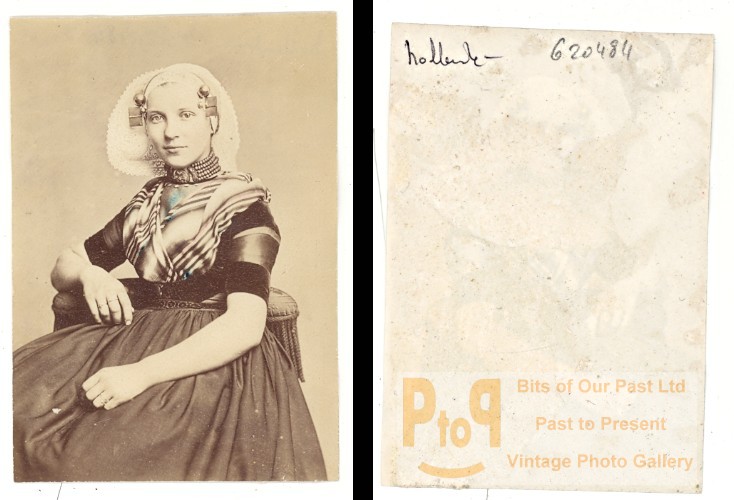 620484
PtoP
Bits of Our Past Ltd
Past to Present
Vintage Photo Gallery